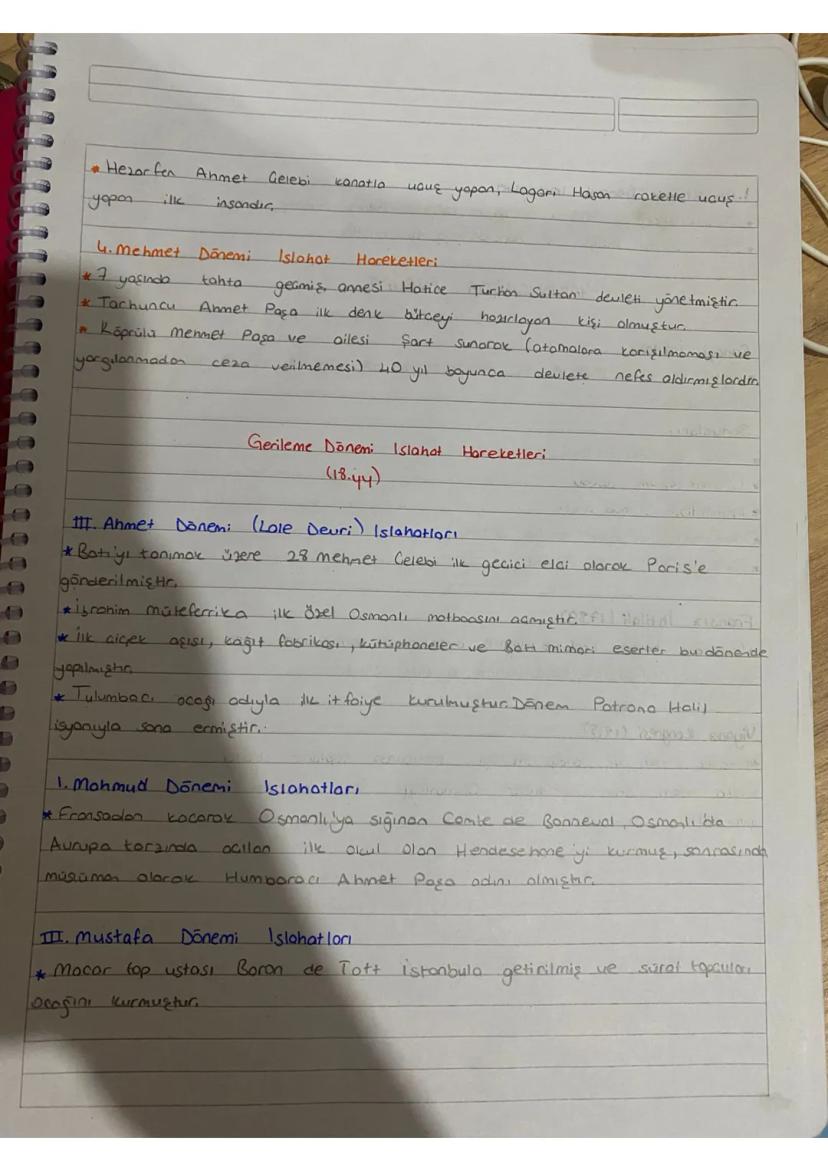 * Hezarfen Ahmet Çelebi kanatla uçuş yapan, Lagari Hasan roketle uçuş
yapan ilk insandır.
4. Mehmet Dönemi Islahat Hareketleri
* 7 yaşında tahta geçmiş, annesi Hatice Turhan Sultan devleti yönetmiştir.
* Tarhuncu Ahmet Paşa ilk denk bütçeyi hazırlayan kişi olmuştur.
* Köprülü Mehmet Paşa ve ailesi şart sunarak (atamalara karışılmaması ve
yargılanmadan ceza verilmemesi) 40 yıl boyunca devlete nefes aldırmışlardır.
Gerileme Dönemi Islahat Hareketleri
(18.yy)
III. Ahmet Dönemi (Lale Devri) Islahatları
* Batı'yı tanımak üzere 28 Mehmet Çelebi ilk geçici elçi olarak Paris'e
gönderilmiştir.
* İbrahim müteferrika ilk özel Osmanlı matbaasını açmıştır.
* İlk çiçek aşısı, kağıt fabrikası, kütüphaneler ve Batı mimari eserler bu dönende
yapılmıştır.
* Tulumbacı ocağı adıyla ilk itfaiye kurulmuştur. Dönem Patrona Halil
isyanıyla sona ermiştir.
1. Mahmud Dönemi Islahatları
* Fransadan kaçarak Osmanlı'ya sığınan Comte de Bonneval, Osmanlı'da
Avrupa tarzında açılan ilk okul olan Hendesehane'yi kurmuş, sonrasında
müsüman olarak Humbaracı Ahmet Paşa adını almıştır.
III. Mustafa Dönemi Islahatları
* Macar top ustası Baron de Tott İstanbula getirilmiş ve sürat topçuları
ocağını kurmuştur.